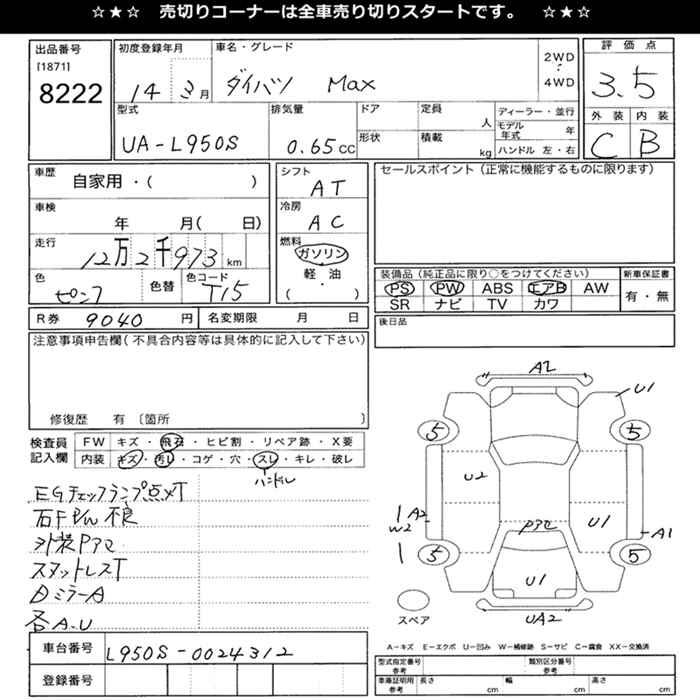 ☆★☆ 売切りコーナーは全車売り切りスタートです。 ☆★☆
出品番号
[1871]
8222
初度登録年月
14 3月
車名・グレード
ダイハツ Max
2WD
・
4WD
評価点
3.5
外装 内装
C B
型式
UA-L950S
排気量
0.65cc
ドア
形状
定員
人
積載
kg
ディーラー・並行
モデル年式 年
ハンドル 左・右
車歴
自家用・( )
車検
年 月( 日)
走行
12万2千973km
色
ピンク
色替
色コード
T15
シフト
AT
冷房
AC
燃料
ガソリン
軽・油
( )
セールスポイント(正常に機能するものに限ります)
装備品(純正品に限り○をつけてください)
PS PW ABS エアB AW
SR ナビ TV カワ
新車保証書
有・無
R券 9040 円
名変期限 月 日
後日品
注意事項申告欄(不具合内容等は具体的に記入して下さい)
修復歴 有 〔箇所 〕
検査員記入欄
FW キズ・飛石・ヒビ割・リペア跡・X要
内装 キズ・汚レ・コゲ・穴・スレ・キレ・破レ
ハンドル
EGチェックランプ点メT
石F P/W 不良
外装Pアセ
スタットレスT
ミラーA
各A.U
車台番号 L950S-0024312
登録番号
A2
U1
5
5
U2
A2
W2
Pアセ
U1
A1
5
5
U1
UA2
スペア
A−キズ E−エクボ U−凹み W−補修跡 S−サビ C−腐食 XX−交換済
型式指定番号 参考
類別区分番号 参考
車庫証明用 参考
長さ cm
幅 cm
高さ cm